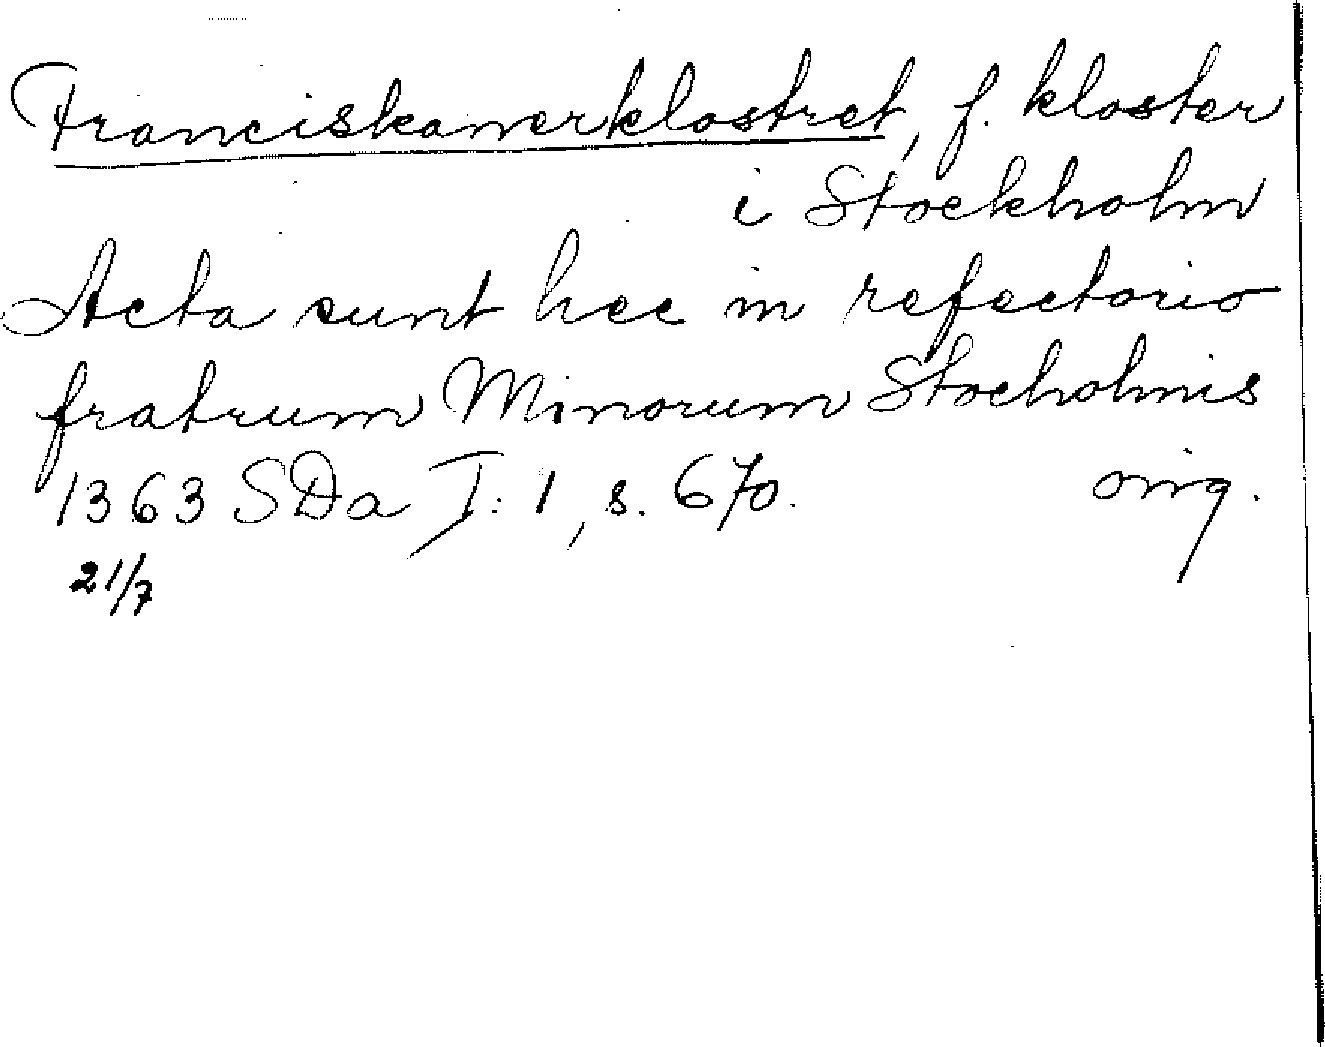 Franciskanerklostret, f. kloster
i Stockholm
Acta sunt hec in refectorio
fratrum Minorum Stocholmis
1363 SDa I: 1, s. 670. orig.
21/7